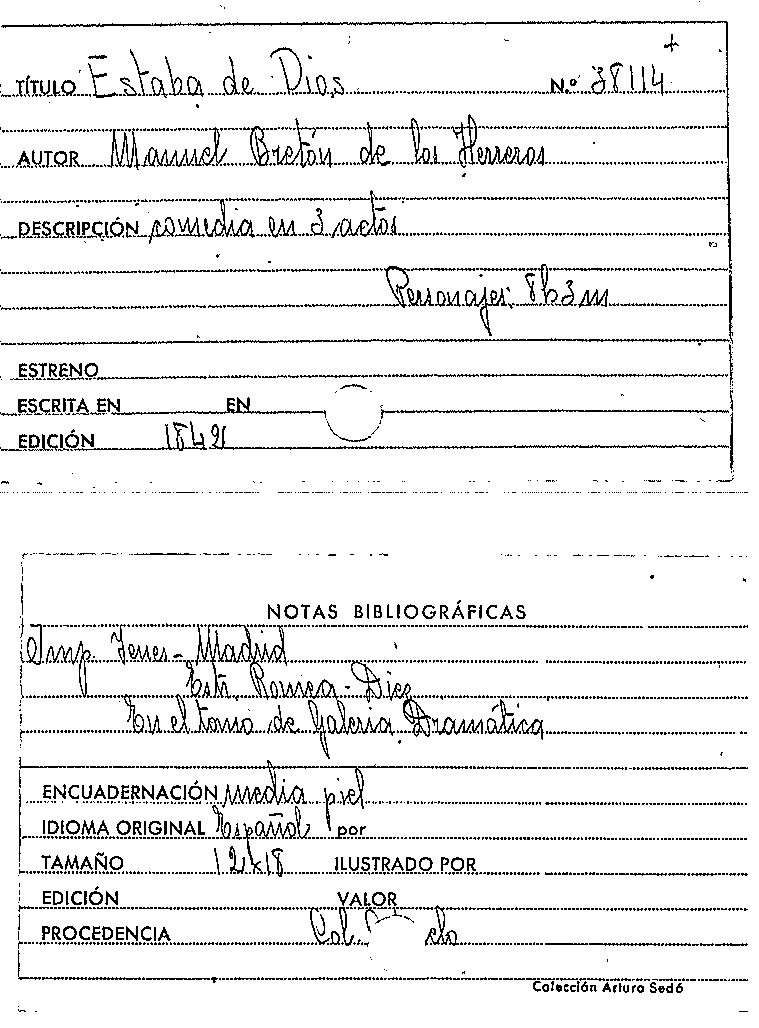 TÍTULO Estaba de Dios N.º 38114 +
AUTOR Manuel Bretón de los Herreros
DESCRIPCIÓN comedia en 3 actos
Personajes: 8h3m
ESTRENO
ESCRITA EN EN
EDICIÓN 1842
NOTAS BIBLIOGRÁFICAS
Imp. Yenes - Madrid
Estr. Romea - Diez
En el tomo de Galeria Dramática
ENCUADERNACIÓN media piel
IDIOMA ORIGINAL Español por
TAMAÑO 12x18 ILUSTRADO POR
EDICIÓN VALOR
PROCEDENCIA Col.
Colección Arturo Sedó